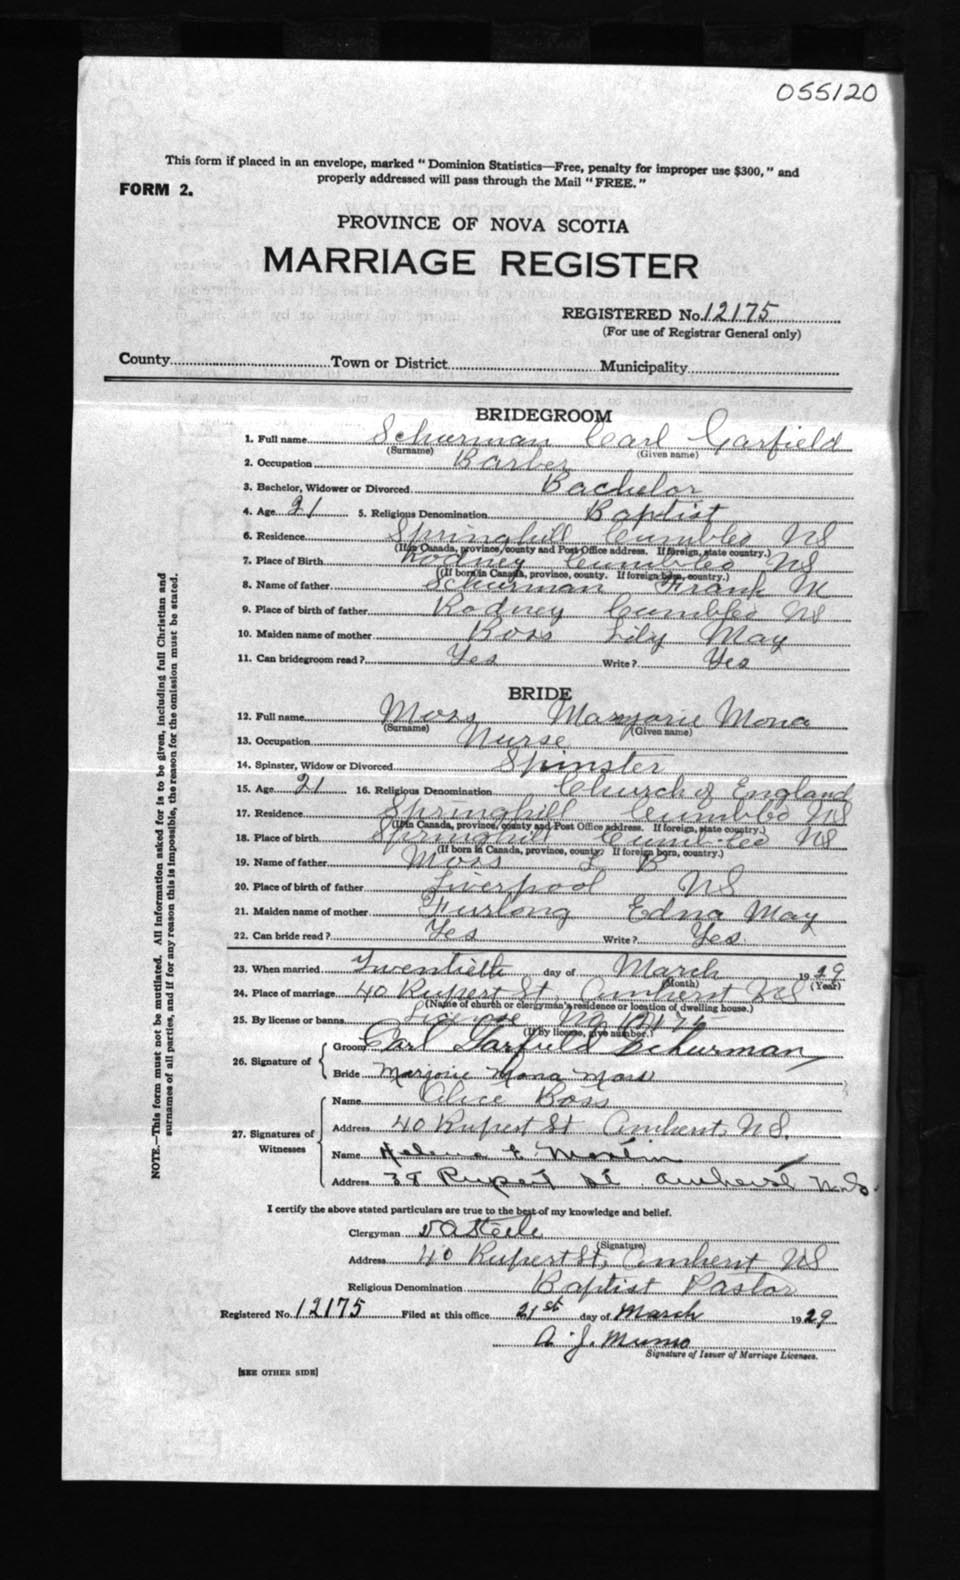 055120
This form if placed in an envelope, marked "Dominion Statistics—Free, penalty for improper use $300," and
properly addressed will pass through the Mail "FREE."
FORM 2.
PROVINCE OF NOVA SCOTIA
MARRIAGE REGISTER
REGISTERED No. 12175
(For use of Registrar General only)
County Town or District Municipality
BRIDEGROOM
1. Full name Schurman Carl Garfield
(Surname) (Given name)
2. Occupation Barber
3. Bachelor, Widower or Divorced Bachelor
4. Age 21 5. Religious Denomination Baptist
6. Residence Springhill Cumbleo NS
(If in Canada, province, county and Post Office address. If foreign, state country.)
7. Place of Birth Rodney Cumbleo NS
(If born in Canada, province, county. If foreign born, country.)
8. Name of father Schurman Frank M
9. Place of birth of father Rodney Cumbleo NS
10. Maiden name of mother Ross Lily May
11. Can bridegroom read? Yes Write? Yes
BRIDE
12. Full name Moss Marjorie Mona
(Surname) (Given name)
13. Occupation Nurse
14. Spinster, Widow or Divorced Spinster
15. Age 21 16. Religious Denomination Church of England
17. Residence Springhill Cumbleo NS
(If in Canada, province, county and Post Office address. If foreign, state country.)
18. Place of birth Springhill NS
(If born in Canada, province, county. If foreign born, country.)
19. Name of father Moss L B
20. Place of birth of father Liverpool NS
21. Maiden name of mother Furlong Edna May
22. Can bride read? Yes Write? Yes.
23. When married Twentieth day of March 1929
(Month) (Year)
24. Place of marriage 40 Rupert St, Amherst NS
(Name of church or clergyman's residence or location of dwelling house.)
25. By license or banns License No 12175
(If by license, give number.)
26. Signature of
Groom Carl Garfield Schurman
Bride Marjorie Mona Moss
27. Signatures of Witnesses
Name Alice Ross
Address 40 Rupert St Amherst, N.S.
Name Helena E
Address 38 Rupert St. Amherst N.S.
I certify the above stated particulars are true to the best of my knowledge and belief.
Clergyman Steele
(Signature)
Address 40 Rupert St, Amherst NS
Religious Denomination Baptist Pastor
Registered No. 12175 Filed at this office 21st day of March 1929
A. J. Munro
Signature of Issuer of Marriage Licenses.
[SEE OTHER SIDE]
NOTE.—This form must not be mutilated. All information asked for is to be given, including full Christian and
surnames of all parties, and if for any reason this is impossible, the reason for the omission must be stated.